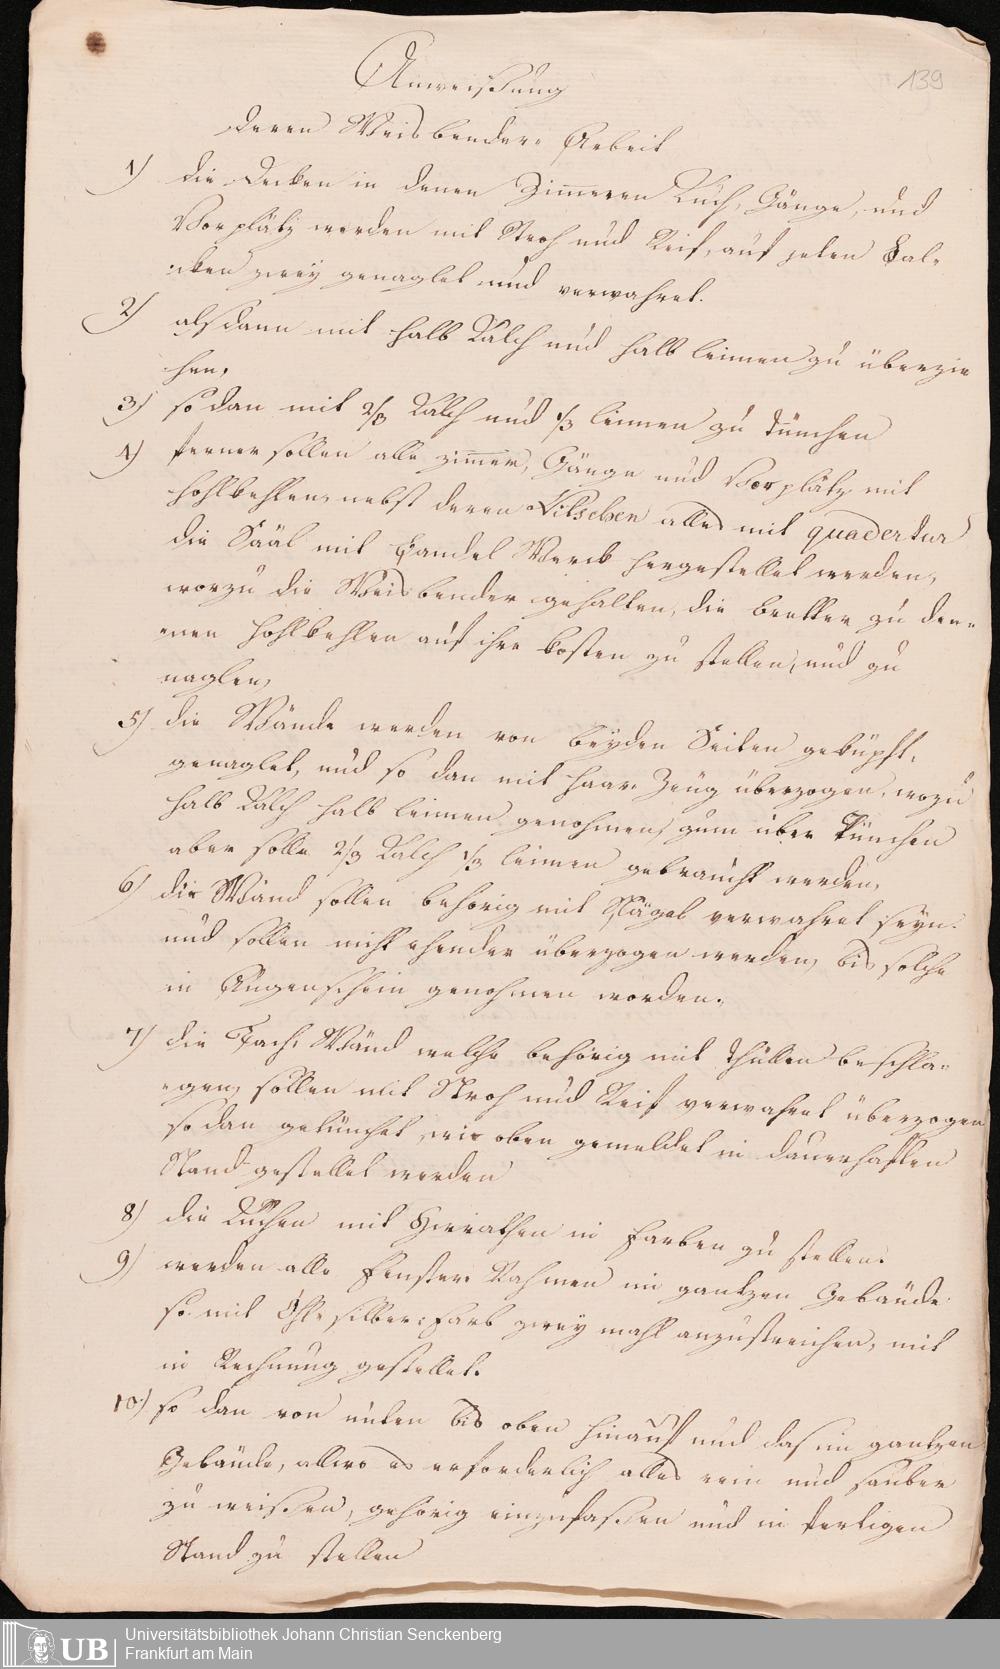 139
Anweisung
deren Weisbender Arbeit
1) die Decken in denen Zimeren Küch, Gänge, und
Vorplätz werden mit Stroh und Reif, auf jeden Bal-
cken zwey genaglet und verwahret.
2) alsdann mit halb Kalch und halb leimen zu überzie
hen,
3) so dan mit 2/3 Kalch und 1/3 leimen zu tünchen
4) ferner sollen alle zimer, Gänge und Vorplätz mit
Hohlkehlen, nebst deren Nitschen alles mit quadertur
die Sääl mit Bandel Werck hergestellet werden,
worzu die Weisbender gehalten, die bretter zu den-
enen Hohlkehlen auf ihre kosten zu stellen, und zu
naglen,
5) die Wände werden von beyden Seiten geküpft,
genaglet, und so dan mit Haar Zeüg überzogen, wozu
halb Kalch halb leimen genohmen, zum über Tünchen
aber solle 2/3 Kalch 1/3 leimen gebraucht werden,
6) die Wänd sollen behörig mit Nägel verwahret seyn.
und sollen nicht ehender überzogen werden, bis solche
in Augenschein genohmen worden.
7) die Fach Wänd welche behörig mit thüllen beschla-
gen, sollen mit Stroh und Reif verwahret überzogen
so dan getünchet, wie oben gemeldet in dauerhaften
Stand gestellet werden
8) die Küchen mit in farben zu stellen.
9) werden alle fenster Rahmen im gantzen Gebäude
so mit Öhl silber farb zwey mahl anzustreichen, mit
in Rechnung gestellet.
10) so dan von unten bis oben hinauf und das im gantzen
Gebäude, allwo es erforderlich alles rein und sauber
zu weissen, gehörig einzufassen und in fertigen
Stand zu stellen
UB
Universitätsbibliothek Johann Christian Senckenberg
Frankfurt am Main